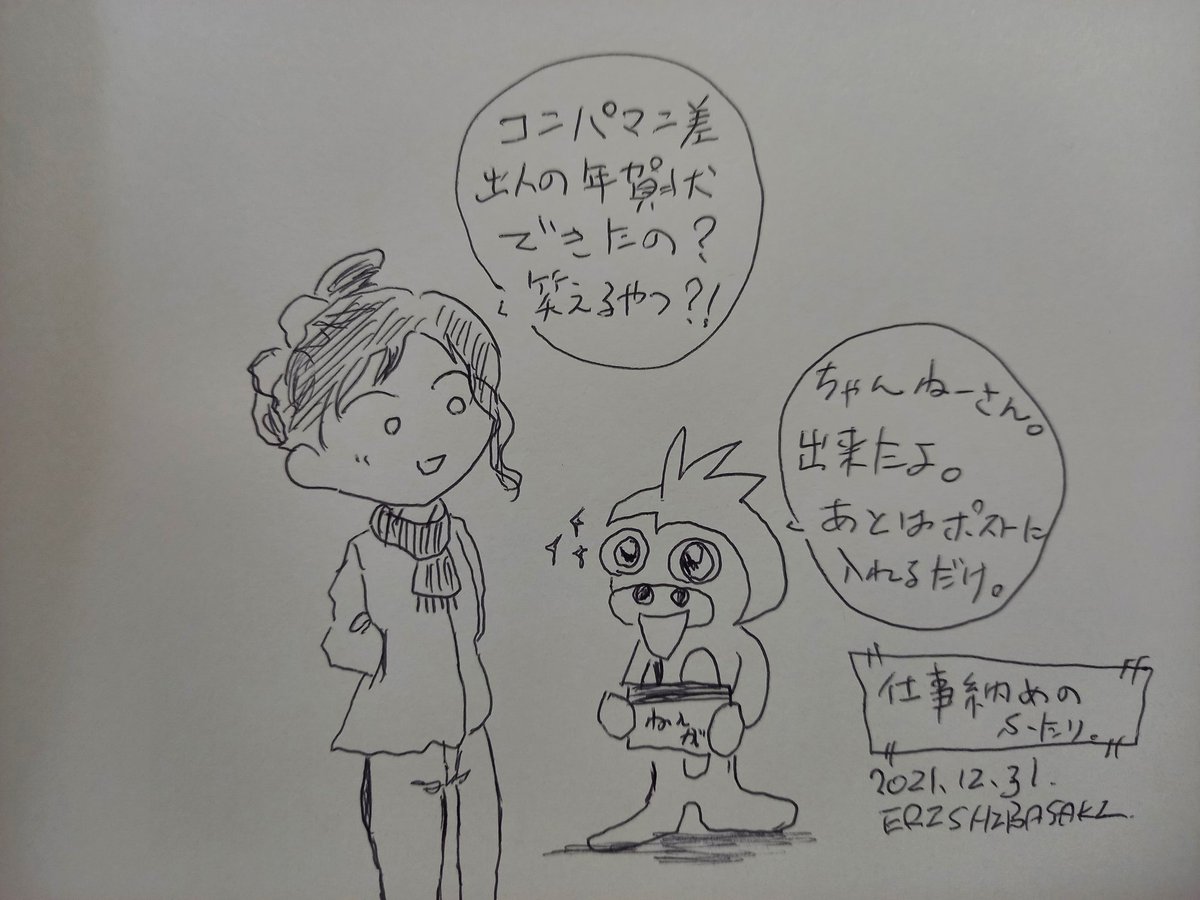 コニパマニ差
出人の年賀状
できたの?
笑えるやつ?!
ちゃんねーさん。
出来たよ。
あとはポストに
入れるだけ。
ねん
が
仕事納めの
ふたり。
2021.12.31.
ERI SHIBASAKI